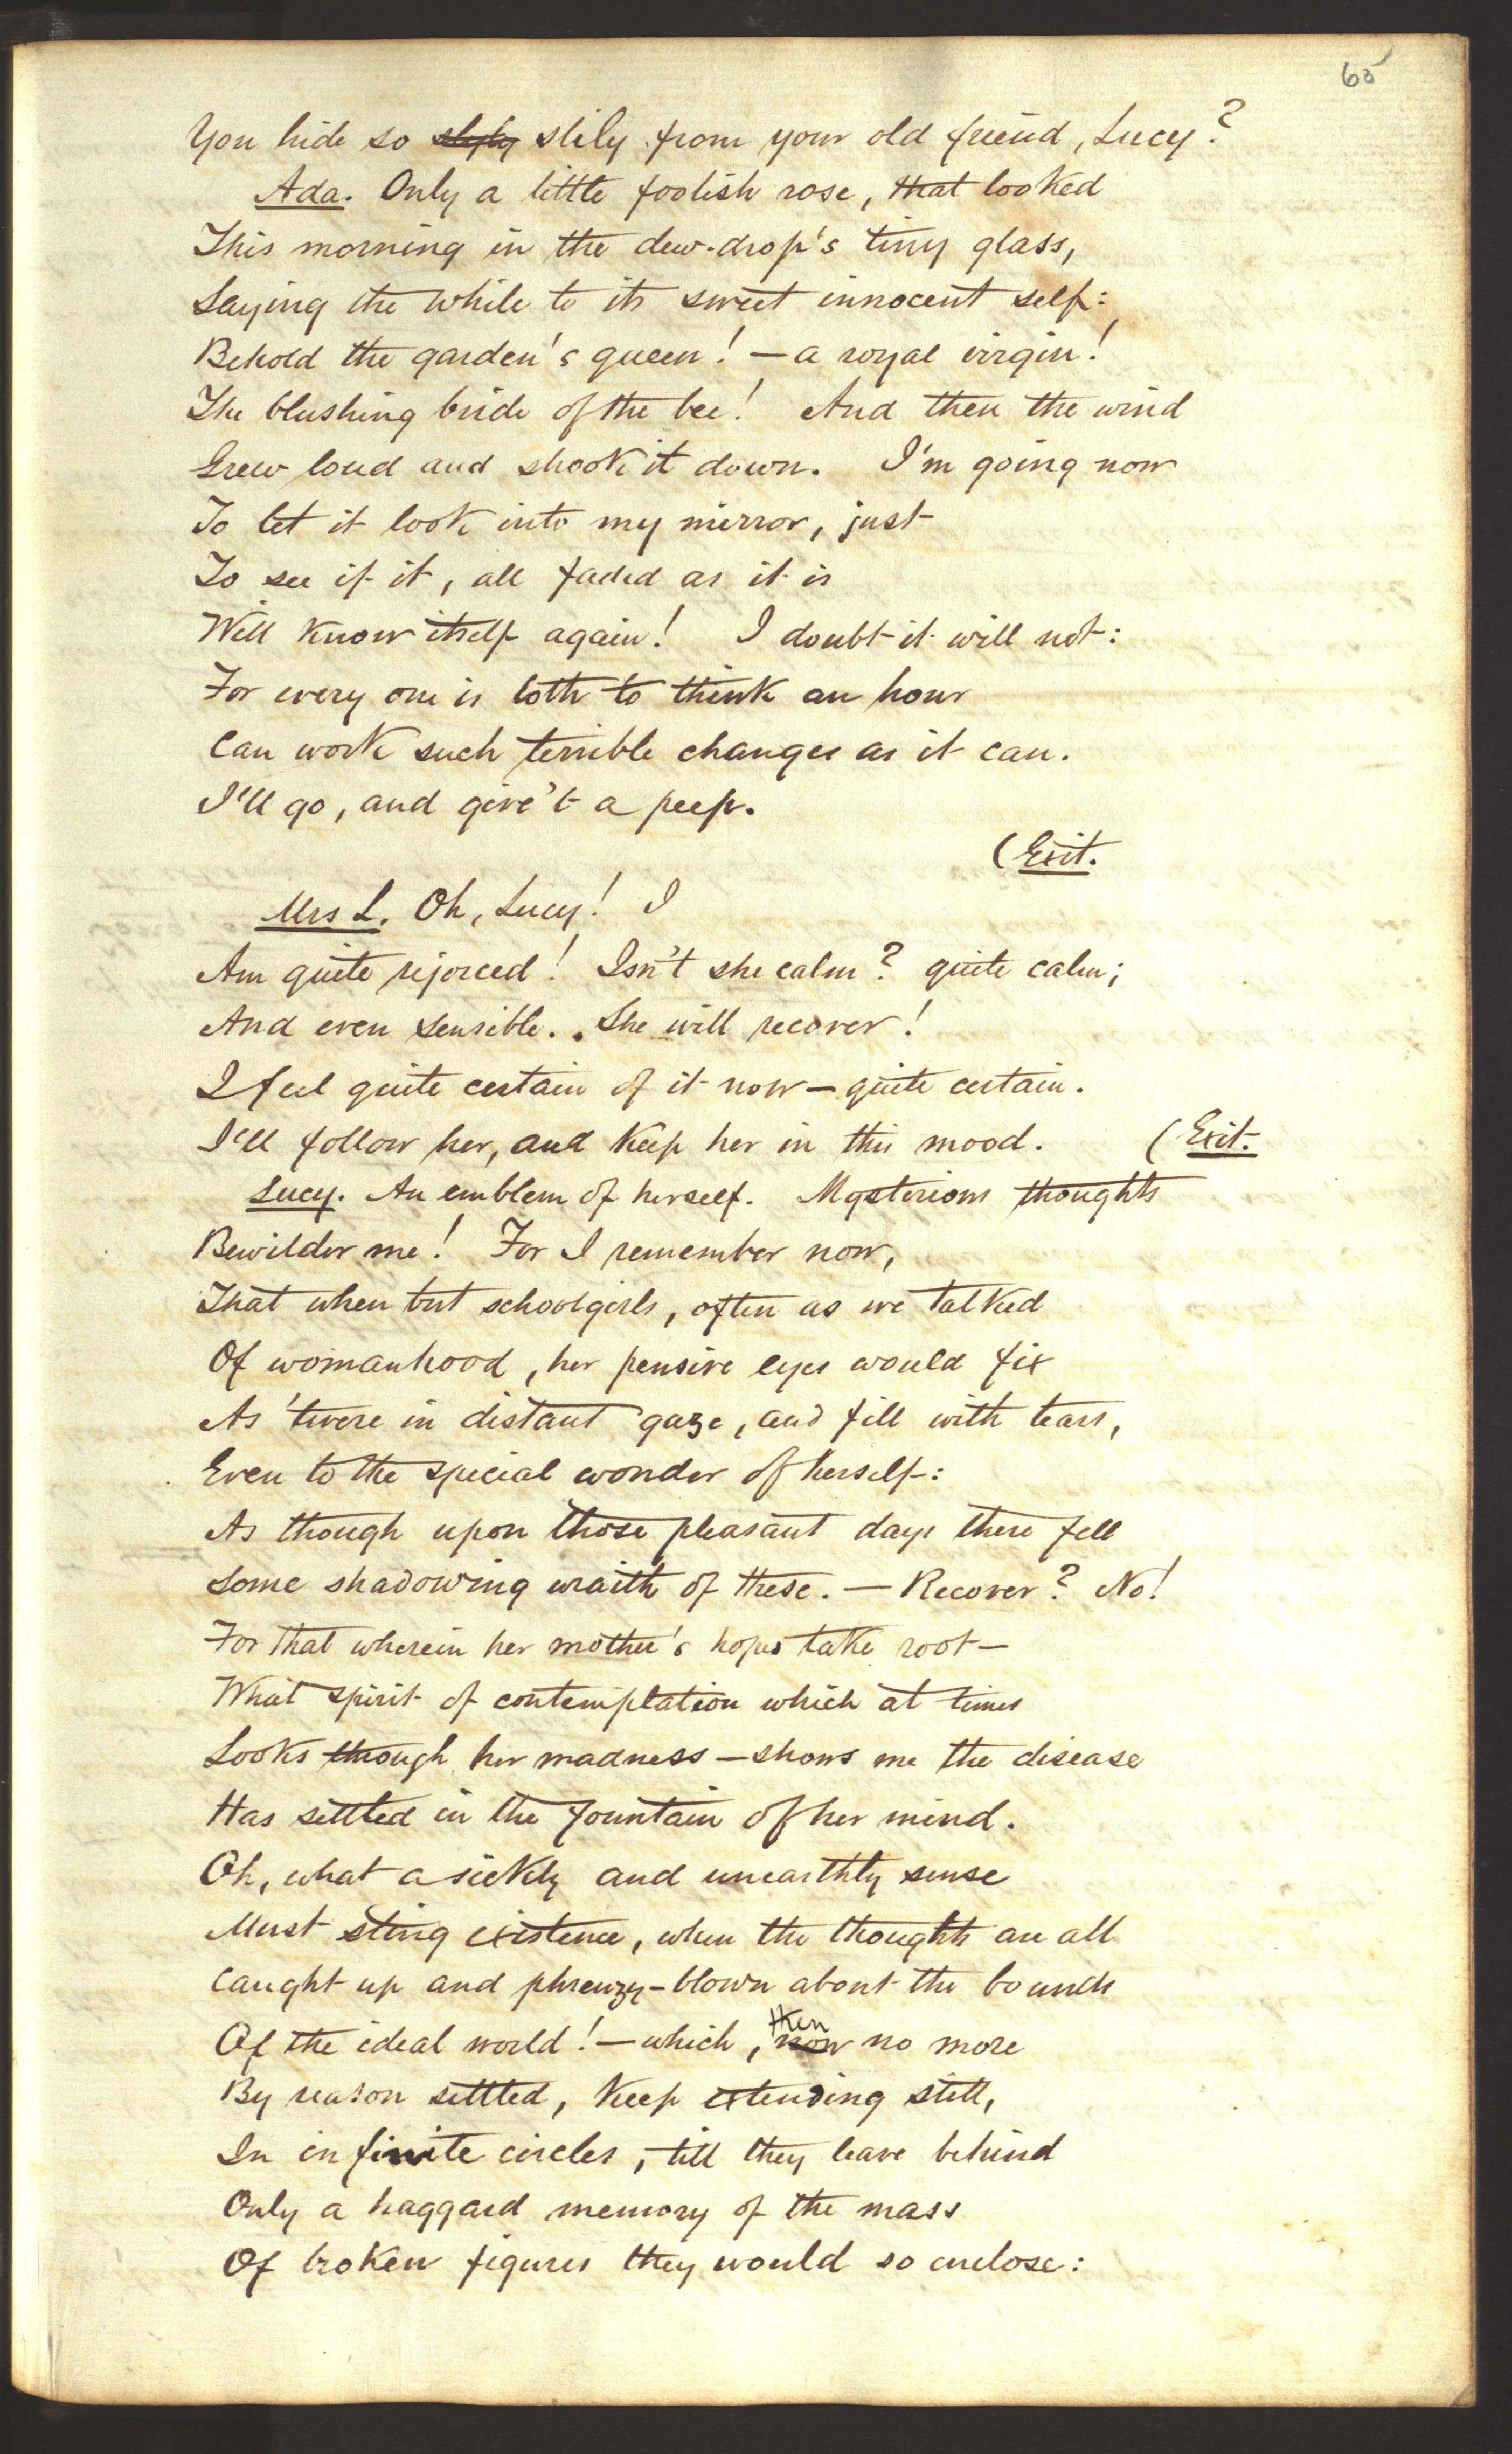 65
You hide so slyly slily from your old friend, Lucy?
Ada. Only a little foolish rose, that looked
This morning in the dew-drop's tiny glass,
Saying the while to its sweet innocent self:
Behold the garden's queen! — a royal virgin!
The blushing bride of the bee! And then the wind
Grew loud and shook it down. I'm going now
To let it look into my mirror, just
To see if it, all faded as it is
Will know itself again! I doubt it will not:
For every one is loth to think an hour
Can work such terrible changes as it can.
I'll go, and give't a peep.
(Exit.
Mrs L. Oh, Lucy! I
Am quite rejoiced! Isn't she calm? quite calm;
And even sensible. She will recover!
I feel quite certain of it now — quite certain.
I'll follow her, and keep her in this mood. (Exit.
Lucy. An emblem of herself. Mysterious thoughts
Bewilder me! For I remember now,
That when but schoolgirls, often as we talked
Of womanhood, her pensive eyes would fix
As 'twere in distant gaze, and fill with tears,
Even to the special wonder of herself:
As though upon those pleasant days there fell
Some shadowing wraith of these. — Recover? No!
For that wherein her mother's hopes take root —
What spirit of contemplation which at times
Looks though her madness — shows me the disease
Has settled in the fountain of her mind.
Oh, what a sickly and unearthly sense
Must sting existence, when the thoughts are all
Caught up and phrenzy-blown about the bounds
Of the ideal world! — which, now then no more
By reason settled, keep extending still,
In infinite circles, till they leave behind
Only a haggard memory of the mass
Of broken figures they would so enclose: